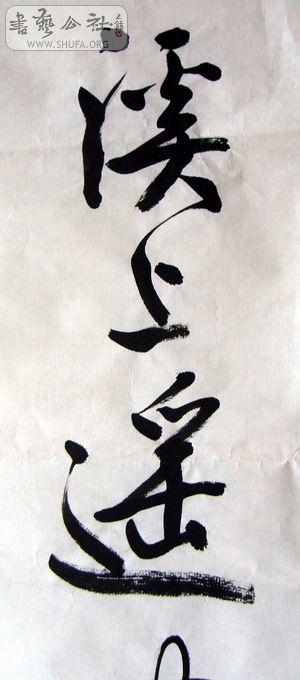 書藝公社
WWW.SHUFA.ORG
溪上遥